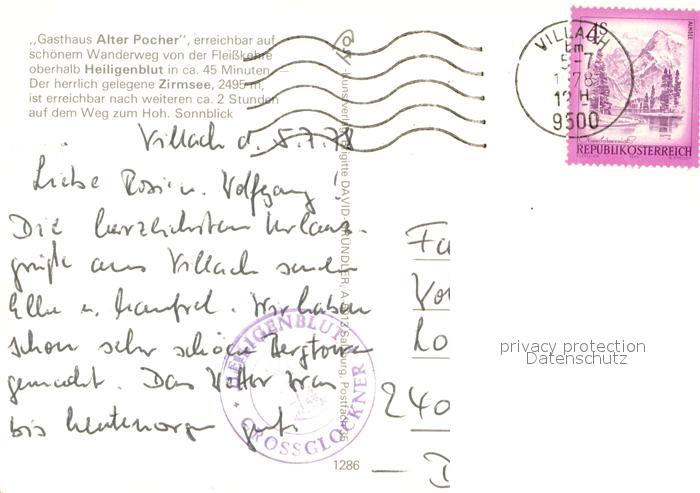 „Gasthaus Alter Pocher“, erreichbar auf
schönem Wanderweg von der Fleißkehre
oberhalb Heiligenblut in ca. 45 Minuten.
Der herrlich gelegene Zirmsee, 2495 m,
ist erreichbar nach weiteren ca. 2 Stunden
auf dem Weg zum Hoh. Sonnblick
Villach d. 5.7.78
Liebe Rosi u. Wolfgang!
Die herzlichsten Urlaubs-
grüße aus Villach senden
Elke u. Manfred. Wir haben
schon sehr schöne Bergtouren
gemacht. Das Wetter war
bis heute morgen gut.
Kunstverlag Brigitte DAVID-GRÜNDLER, Salzburg, Postfach
1286
HEILIGENBLUT
GROSSGLOCKNER
VILLACH
5-7
78
12 H
9500
4S
ALMSEE
REPUBLIK ÖSTERREICH
Fa
Vo
Lo
240
D
privacy protection
Datenschutz